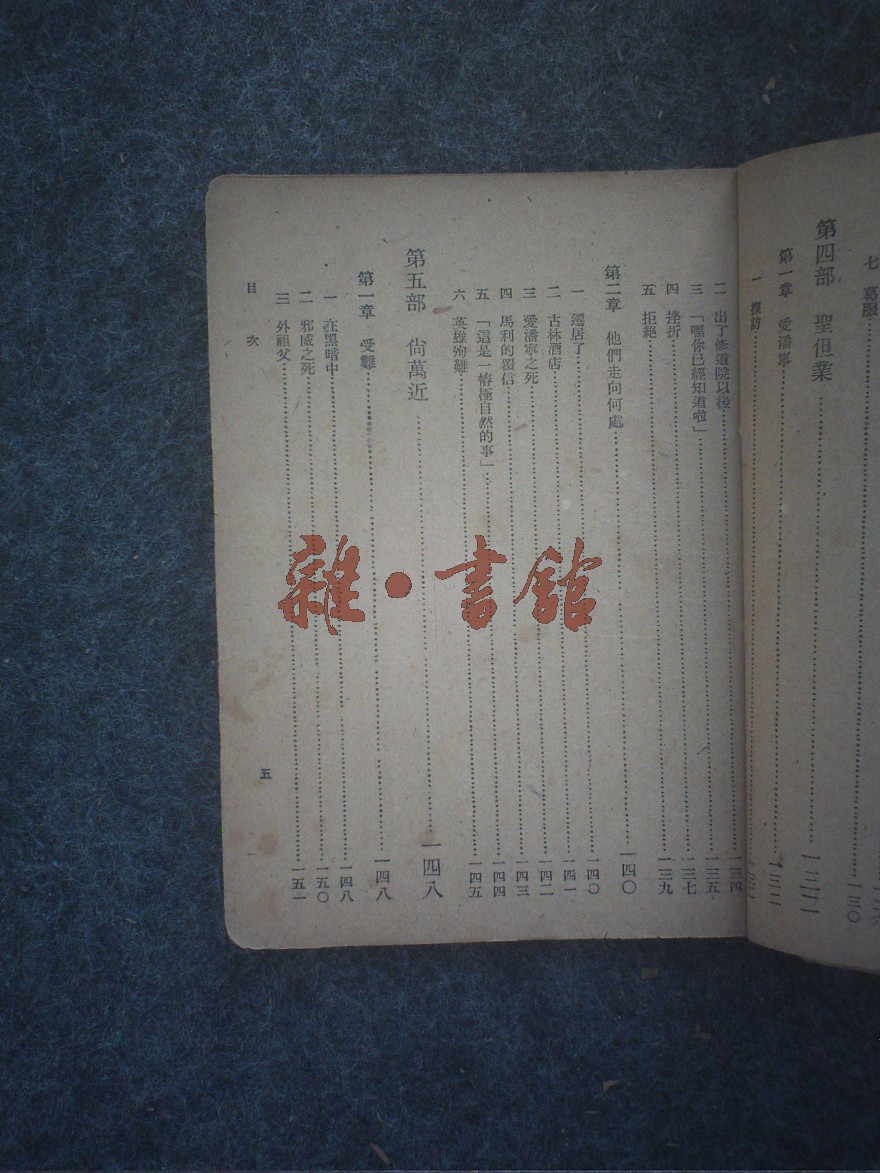 第四部 聖但業……一三二
第一章 愛潘寧……一三二
一 探訪
二 出了修道院以後……一三四
三 「嘿你已經知道啦」……一三五
四 挫折……一三七
五 拒絕……一三九
第二章 他們走向何處……一四〇
一 遷居了……一四〇
二 古林酒店……一四一
三 愛潘寧之死……一四二
四 馬利的覆信……一四三
五 「這是一樁極自然的事」……一四四
六 英雄殉難……一四五
第五部 尙萬近……一四八
第一章 受難……一四八
一 在黑暗中……一四八
二 邪威之死……一五〇
三 外祖父……一五一
目 次
五
雜·書館